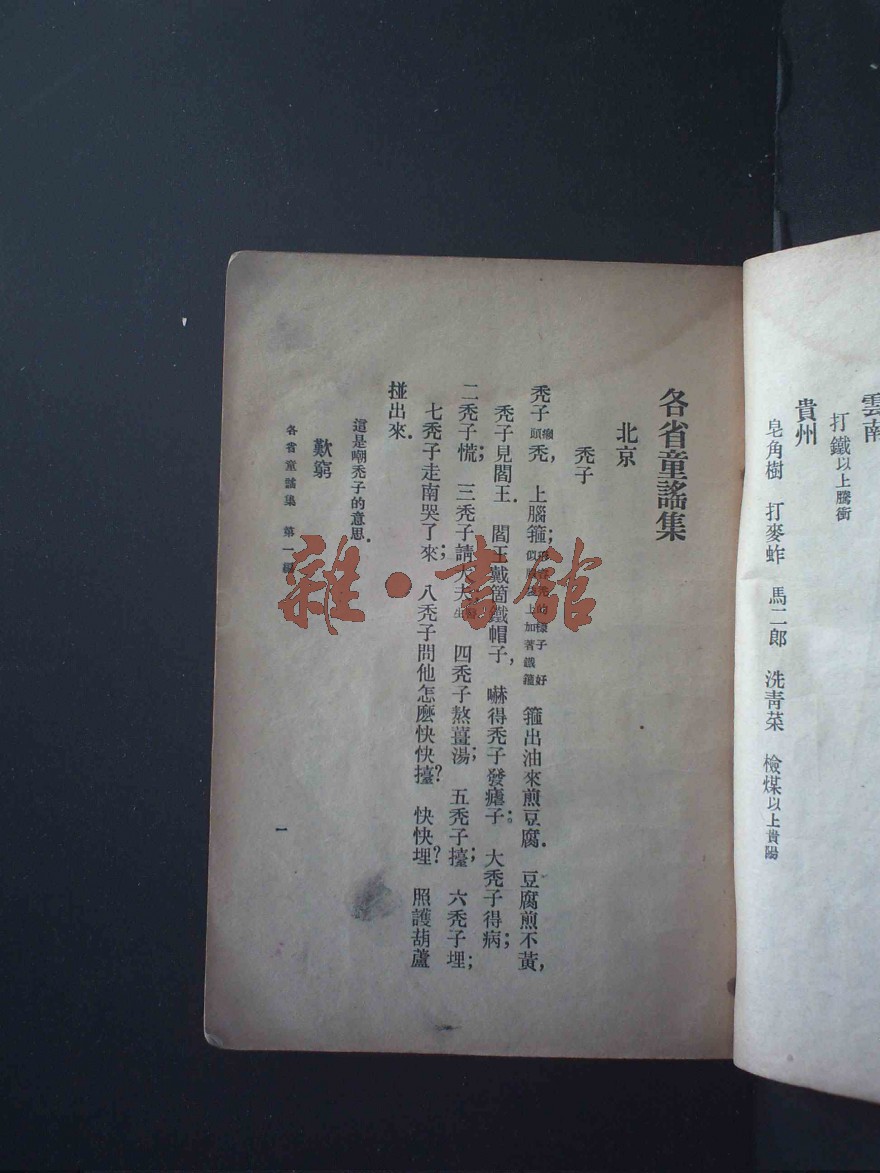 雲南
打鐵以上騰衝
貴州
皂角樹　打麥蚱　馬二郎　洗青菜　檢煤以上貴陽
各省童謠集
北京
禿子
禿子癩頭禿，上腦箍；樣子好似上加著鐵箍　箍出油來煎豆腐．豆腐煎不黃，
禿子見閻王．閻王戴箇鐵帽子，嚇得禿子發瘧子；。大禿子得病；
二禿子慌；三禿子請大夫　四禿子熬薑湯；五禿子擡；六禿子埋；
七禿子走南哭了來；八禿子問他怎麽快快擡？快快埋？照護葫蘆
掽出來．
這是嘲禿子的意思．
歎窮
各省童謠集　第一編
一
雜·書館